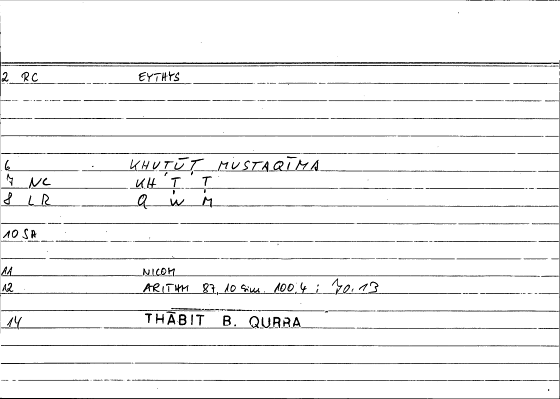 2 RC EYTHYS
6 KHUṬŪṬ MUSTAQĪMA
7 NC KH Ṭ Ṭ
8 LR Q W M
10 SA
11 NICOM
12 ARITHM 87,10 sim. 100,4 ; 70.13
14 THĀBIT B. QURRA